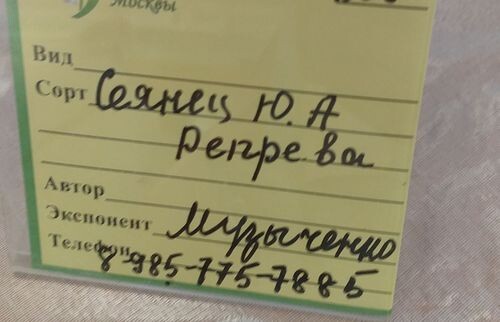 Москвы
Вид
Сорт Сеянец Ю.А
Репрева
Автор
Экспонент Музыченко
Телефон
8-985-775-7885